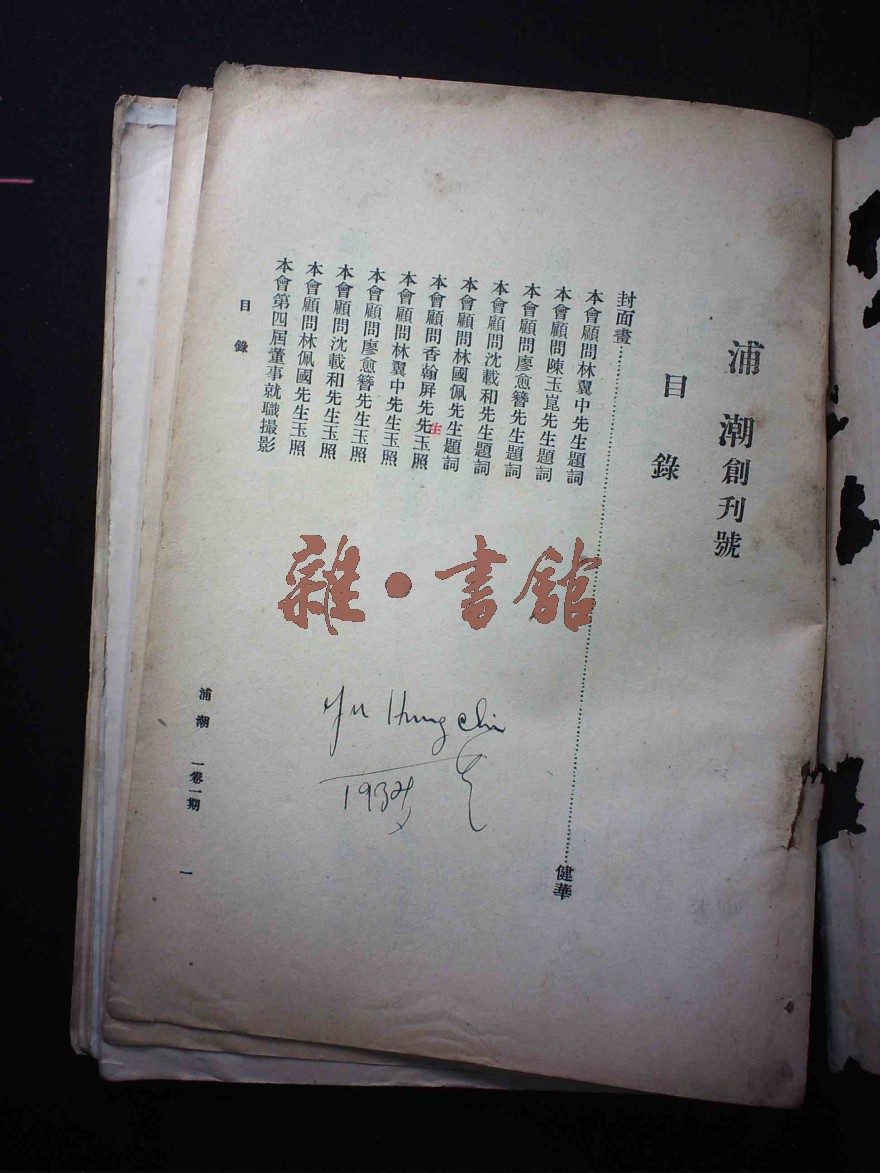 浦潮創刊號
目錄
封面畫……健華
本會顧問林翼中先生題詞
本會顧問陳玉崑先生題詞
本會顧問廖愈簪先生題詞
本會顧問沈載和先生題詞
本會顧問林國佩先生題詞
本會顧問香翰屏先先玉照
生
本會顧問林翼中先生玉照
本會顧問廖愈簪先生玉照
本會顧問沈載和先生玉照
本會顧問林佩國先生玉照
本會第四屆董事就職撮影
目錄
浦潮 一卷一期 一
雜•書館
Yu Hung chi